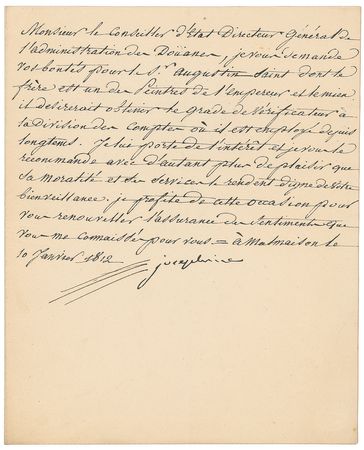 Monsieur le Conseiller d'État Directeur Général de
l'administration des Doüanes, je vous demande
vos bontés pour le Sr. Augustin Saint dont le
frère est un des Peintres de l'Empereur et le mien
il désirerait obtenir le grade de Vérificateur à
la Division des Comptes où il est employé depuis
longtems. Je lui porte de l'intérêt et je vous le
recommande avec d'autant plus de plaisir que
sa moralité et ses services le rendent digne de votre
bienveillance. je profite de cette occasion pour
vous renouveller l'assurance des Sentiments que
vous me connaissés pour vous = à Malmaison le
10 Janvier 1812
joséphine